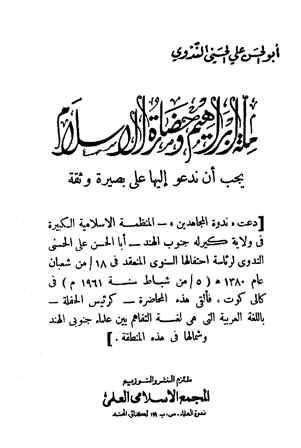 أبو الحسن علي الحسني الندوي
ملة إبراهيم وحضارة الإسلام
يجب أن ندعو إليها على بصيرة وثقة
[ دعت « ندوة المجاهدين » – المنظمة الاسلامية الكبيرة
فى ولاية كيرله جنوب الهند – أبا الحسن على الحسنى
الندوى لرئاسة احتفالها السنوى المنعقد فى ١٨/ من شعبان
عام ١٣٨٠ ھ ( ٥/ من شباط سنة ١٩٦١ م ) فى
كالى كوت ، فألقى هذه المحاضرة – كرئيس الحفلة –
باللغة العربية التى هى لغة التفاهم بين علماء جنوبى الهند
وشمالها فى هذه المنطقة . ]
ملتزم النشر والتوزيع
المجمع الاسلامى العلمى
ندوة العلماء، ص ب ١١٩ لكهنؤ الهند